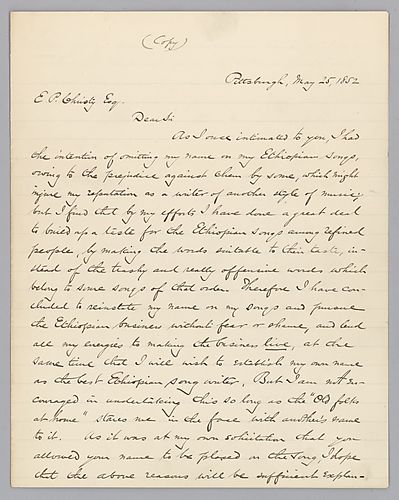 (Copy)
Pittsburgh, May 25, 1852
E. P. Christy Esq.
Dear Sir
As I once intimated to you, I had
the intention of omitting my name on my Ethiopian songs,
owing to the prejudice against them by some, which might
injure my reputation as a writer of another style of music,
but I find that by my efforts I have done a great deal
to build up a taste for the Ethiopian songs among refined
people, by making the words suitable to their taste, in-
stead of the trashy and really offensive words which
belong to some songs of that order. Therefore I have con-
cluded to reinstate my name on my songs and pursue
the Ethiopian business without fear or shame, and lend
all my energies to making the business live, at the
same time that I will wish to establish my own name
as the best Ethiopian song writer. But I am not en-
couraged in undertaking this so long as the "Old folks
at home" stares me in the face with another's name
to it. As it was at my own solicitation that you
allowed your name to be placed on the song, I hope
that the above reasons will be sufficient explan-